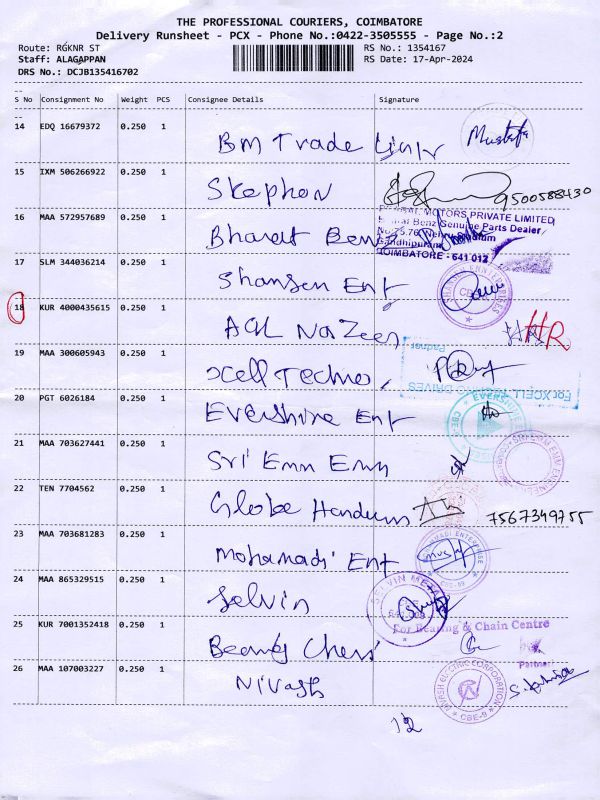 THE PROFESSIONAL COURIERS, COIMBATORE
Delivery Runsheet - PCX - Phone No.:0422-3505555 - Page No.:2
Route: RGKNR ST RS No.: 1354167
Staff: ALAGAPPAN RS Date: 17-Apr-2024
DRS No.: DCJB135416702
S No Consignment No Weight PCS Consignee Details Signature
14 EDQ 16679372 0.250 1 BM Trade Mustafa
15 IXM 506266922 0.250 1 Stephen 9500588430
16 MAA 572957689 0.250 1 Bharat Benz
MOTORS PRIVATE LIMITED
Benz Genuine Parts Dealer
Gandhipuram
COIMBATORE - 641 012
17 SLM 344036214 0.250 1 Shansen Ent
18 KUR 4000435615 0.250 1 HR
19 MAA 300605943 0.250 1 Xcell Techno
For XCELL DRIVES
Partner
20 PGT 6026184 0.250 1 Evershine Ent
21 MAA 703627441 0.250 1 Sri Emm Emm
22 TEN 7704562 0.250 1 Globe 7567349755
23 MAA 703681283 0.250 1 Mohamadi Ent
24 MAA 865329515 0.250 1 Selvin
SELVIN METAL
25 KUR 7001352418 0.250 1
For Bearing & Chain Centre
Partner
26 MAA 107003227 0.250 1 Nivash
NIVASH ELECTRIC CORPORATION
CBE-9
12